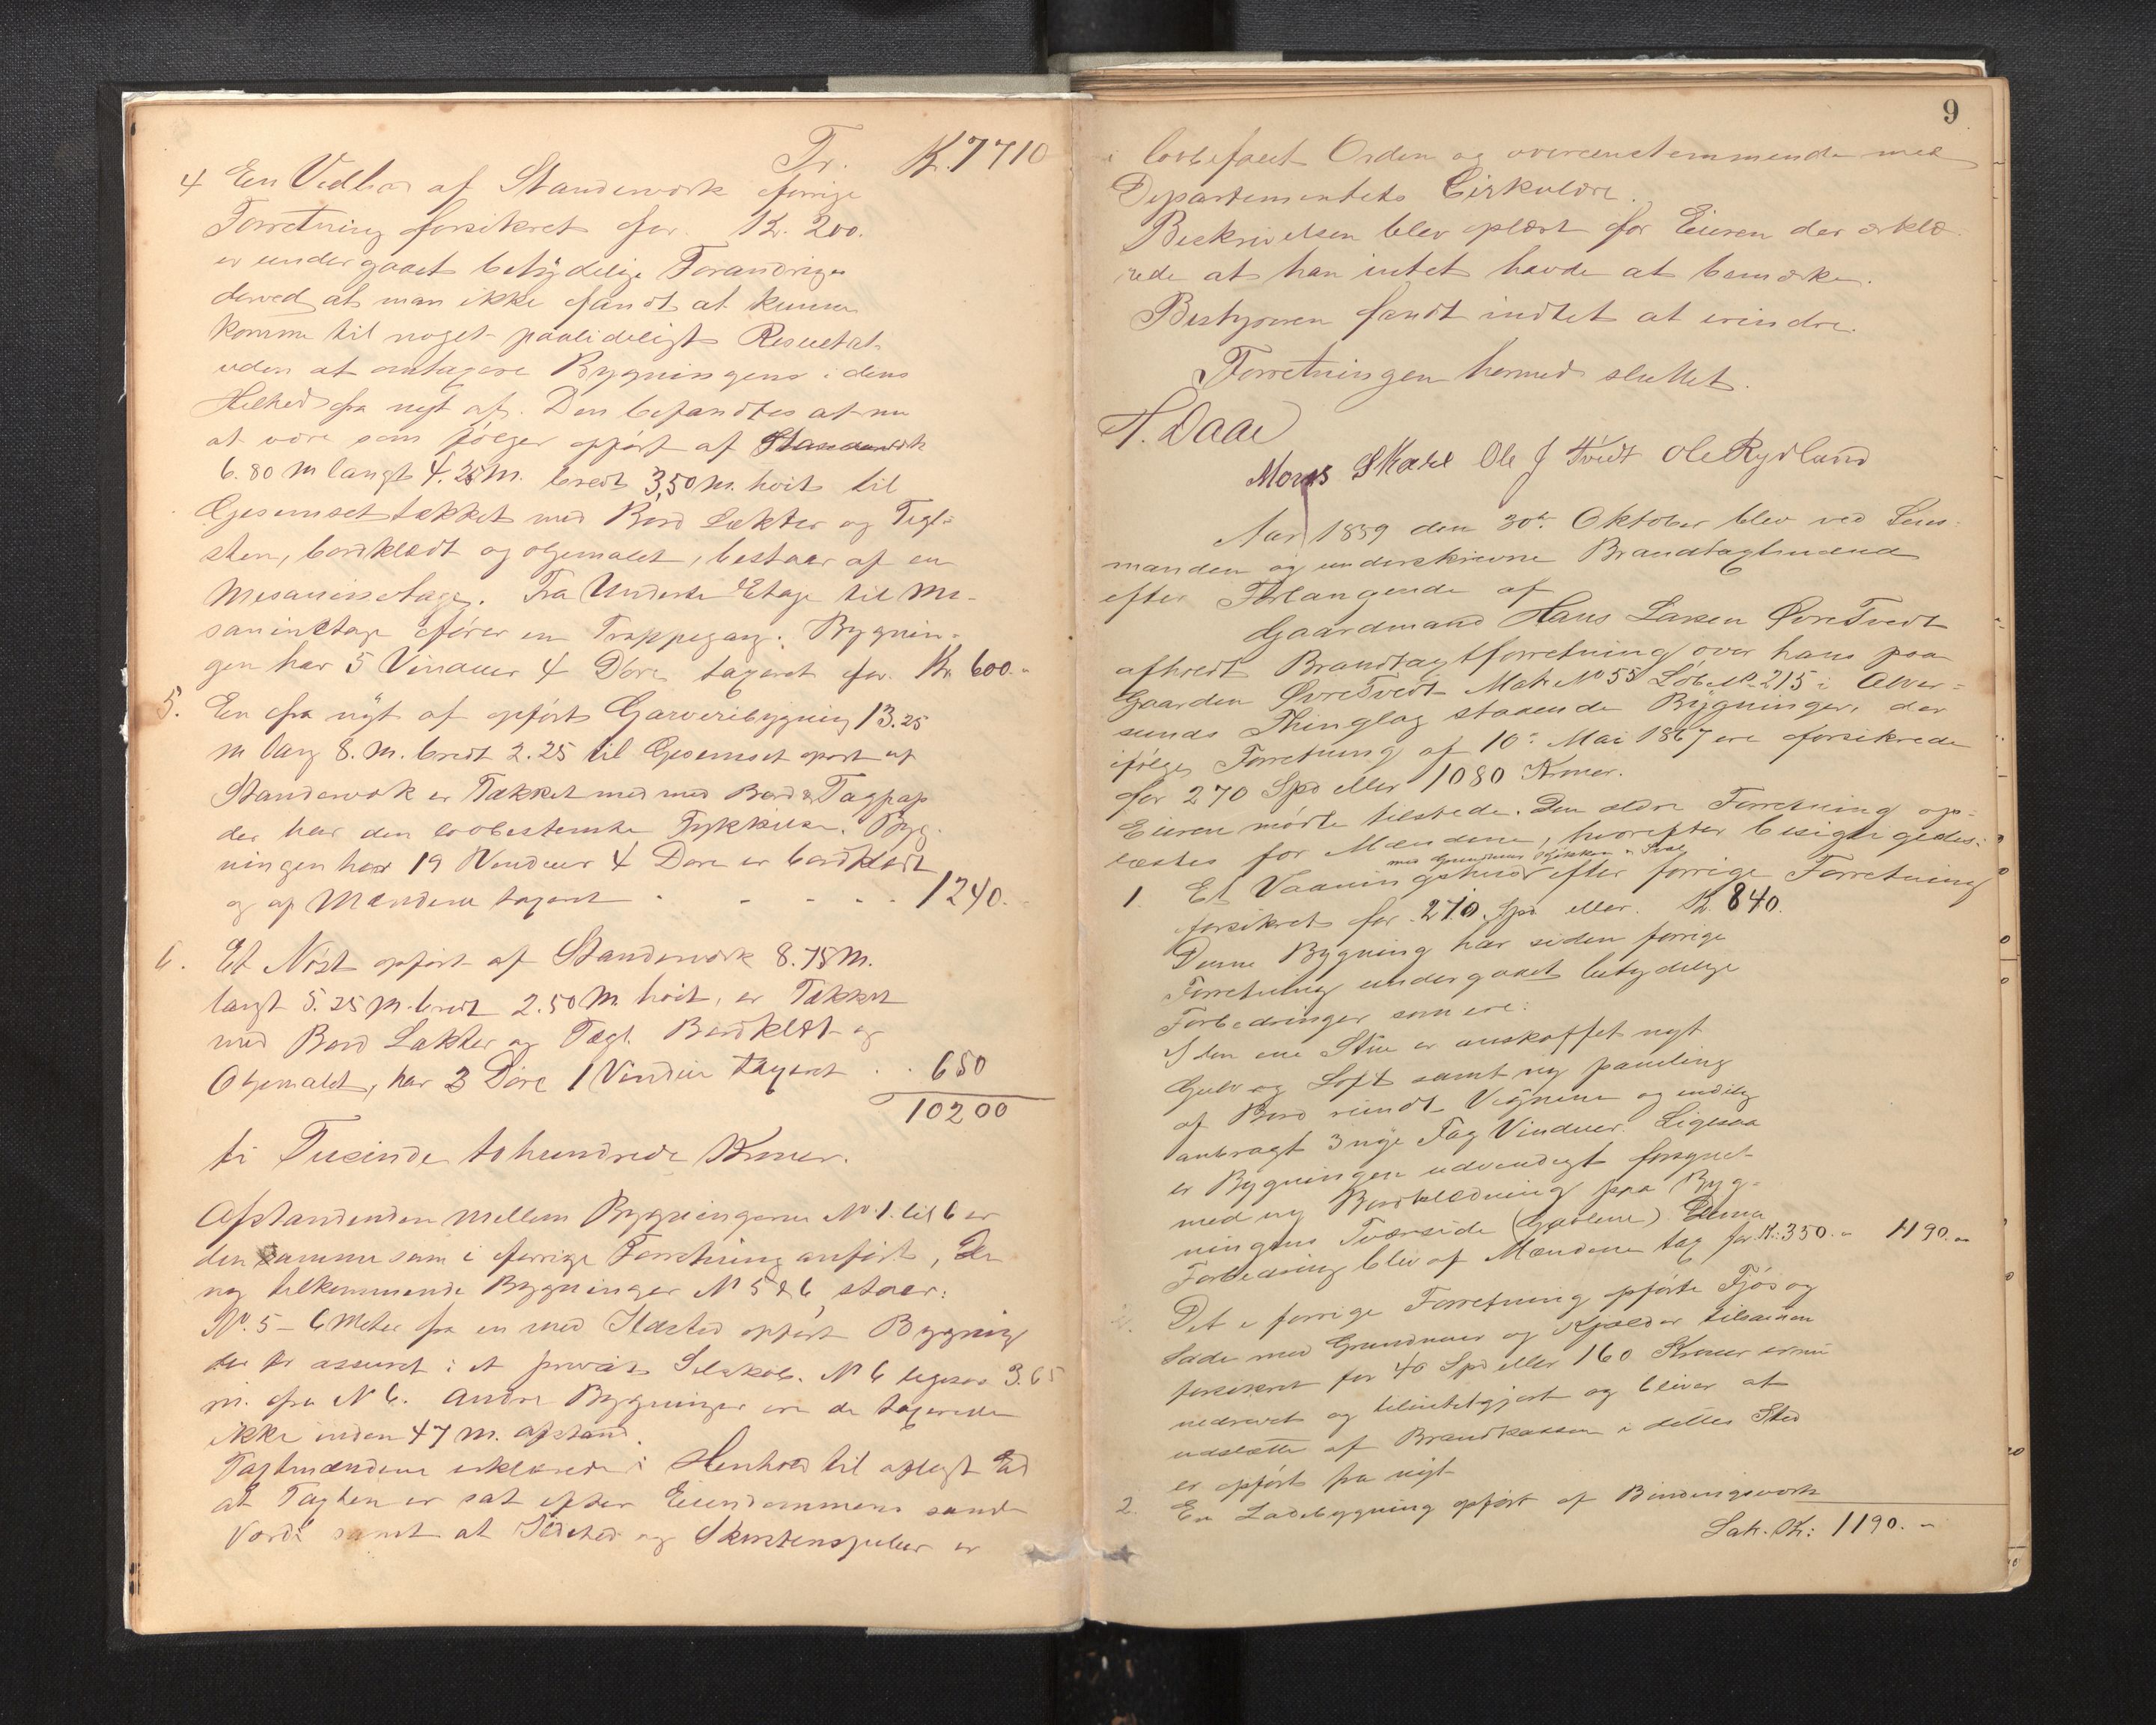 Tr. Kr. 7710
4 Een Vedbod af Standerværk forrige
Forretning forsikret for Kr. 200.
er undergaaet betydelige Forandringer
derved at man ikke fandt at kunne
komme til noget paalideligt Resultat
uden at antagere Bygningens i dens
Helhed fra nyt af. Den befandtes at nu
at være som følger opført af Standerværk
6.80 m langt 4.25 M. bredt 3,50 M. høit til
Gesemset tækket med Bord Lækter og Tegl-
sten, bordklædt og oljemalet, bestaar af en
Mesaninetage. Fra Underste Etage til Me-
saninetage fører en Trappegang. Bygnin-
gen har 5 Vinduer 4 Døre taxeret for Kr 600.-
5. En fra nyt af opført Garveribygning 13.25
m lang 8. M. bredt 2.25 til Gesemset opørt af
Standerværk er Tækket med med Bord & Tagpap
der har den lovbestemte Tykkelse. Byg-
ningen har 19 Vinduer 4 Døre er bordklædt
og af Mændene taxeret - - - 1240.
6. Et Nøst opført af Standerværk 8.75 M.
langt 5.25 M. bredt 2.50 M høit, er Tækket
med Bord Lækter og Tegl. Bordklædt og
Oljemalet, har 3 Døre 1 Vindue taxeret . . 650
10200
ti Tusinde tohundrede Kroner.
Afstandenden mellem Bygningerne No 1. til 6 er
den samme som i forrige Forretning anført, De
ny tilkommende Bygninger N 5 & 6, staar:
No. 5 - 6 Meter fra en med Ildsted opført Bygning
der er assureret i et privat Selskab. N 6 ligesaa 3.65
m. fra N 6. Andre Bygninger ere de taxerede
ikke inden 47 M. afstand.
Taxtmændene erklærede i Henhold til aflagt Ed
at Taxten er sat efter Eiendommens sande
Værdi samt at Ildsted og Skorstenspiber er
9
i lovbefalet Orden og overeenstemmende med
Departementets Cirkulære.
Beskrivelsen blev oplæst for Eieren der erklæ-
rede at han intet havde at bemærke.
Bestyreren fandt indtet at erindre.
Forretningen hermed sluttet.
A. Daae
Mons Skare Ole J Tvedt Ole Rydland
Aar 1889 den 30te Oktober blev ved Lens-
manden og underskrevne Brandtaxtmænd
efter Forlangende af
Gaardmand Hans Larsen Øvre Tvedt
afholdt Brandtaxtforretning over hans paa
Gaarden Øvre Tvedt Matr No 55 Løbe No 215 i Alver-
sunds Thinglag staaende Bygninger, der
ifølge Forretning af 10de Mai 1867 ere forsikrede
for 270 Spd eller 1080 Kroner.
Eieren mødte tilstede. Den ældre Forretning op-
læstes for Mændene, hvorefter besigtigedes:
med Grundmur Kjøkken & Sval
1. Et Vaaningshus efter forrige Forretning
forsikret for 210 Spd eller Kr. 840.
Denne Bygning har siden forrige
Forretning undergaaet betydelige
Forbedringer som ere:
I den ene Stue er anskaffet nyt
Gulv og Loft samt ny paneling
af Bord rundt Væggene og endelig
anbragt 3 nye Fag Vinduer. Ligesaa
er Bygningen udvendigt forsynet
med ny Bordklædning paa Byg-
ningens Tværside (Gavlene). Denne
Forbedring blev af Mændene tax for K: 350.- 1190.-
2. Det i forrige Forretning opførte Fjøs og
Lade med Grundmur og Kjælder tilsammen
forsikret for 40 Spd eller 160 Kroner er nu
nedrevet og tilintetgjort og bliver at
udslætte af Brandkassen i dettes Sted
er opført fra nyt
2. En Ladebygning opført af Bindingsværk
Lat. Kr: 1190.-